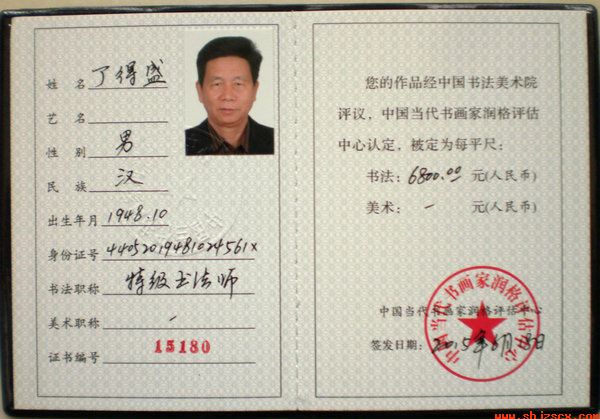 姓 名 丁得盛
艺 名
性 别 男
民 族 汉
出生年月 1948.10
身份证号 44052019481024561x
书法职称 特级书法师
美术职称 -
证书编号 15180
您的作品经中国书法美术院
评议，中国当代书画家润格评估
中心认定，被定为每平尺：
书法：6800.00 元(人民币)
美术：- 元(人民币)
中国当代书画家润格评估中心
中国当代书画家润格评估中心
签发日期：2015年6月28日